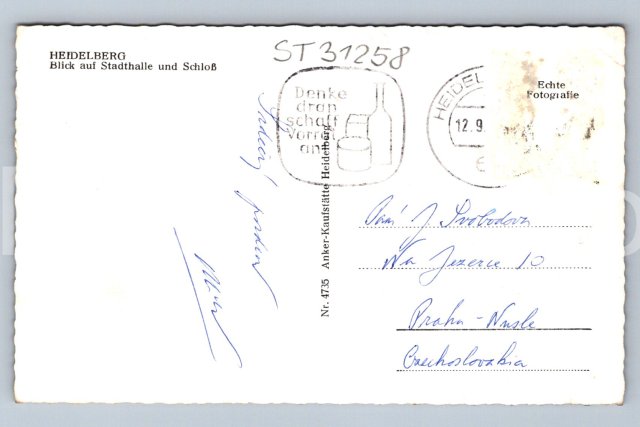 HEIDELBERG
Blick auf Stadthalle und Schloß
ST31258
Denke
dran
schaff
Vorrat
an!
HEIDEL
12.9.
Echte
Fotografie
Srdečný pozdrav
Nr. 4735 Anker-Kaufstätte Heidelberg
Paní J Svobodova
Na Jezerce 10
Praha-Nusle
Czechoslovakia